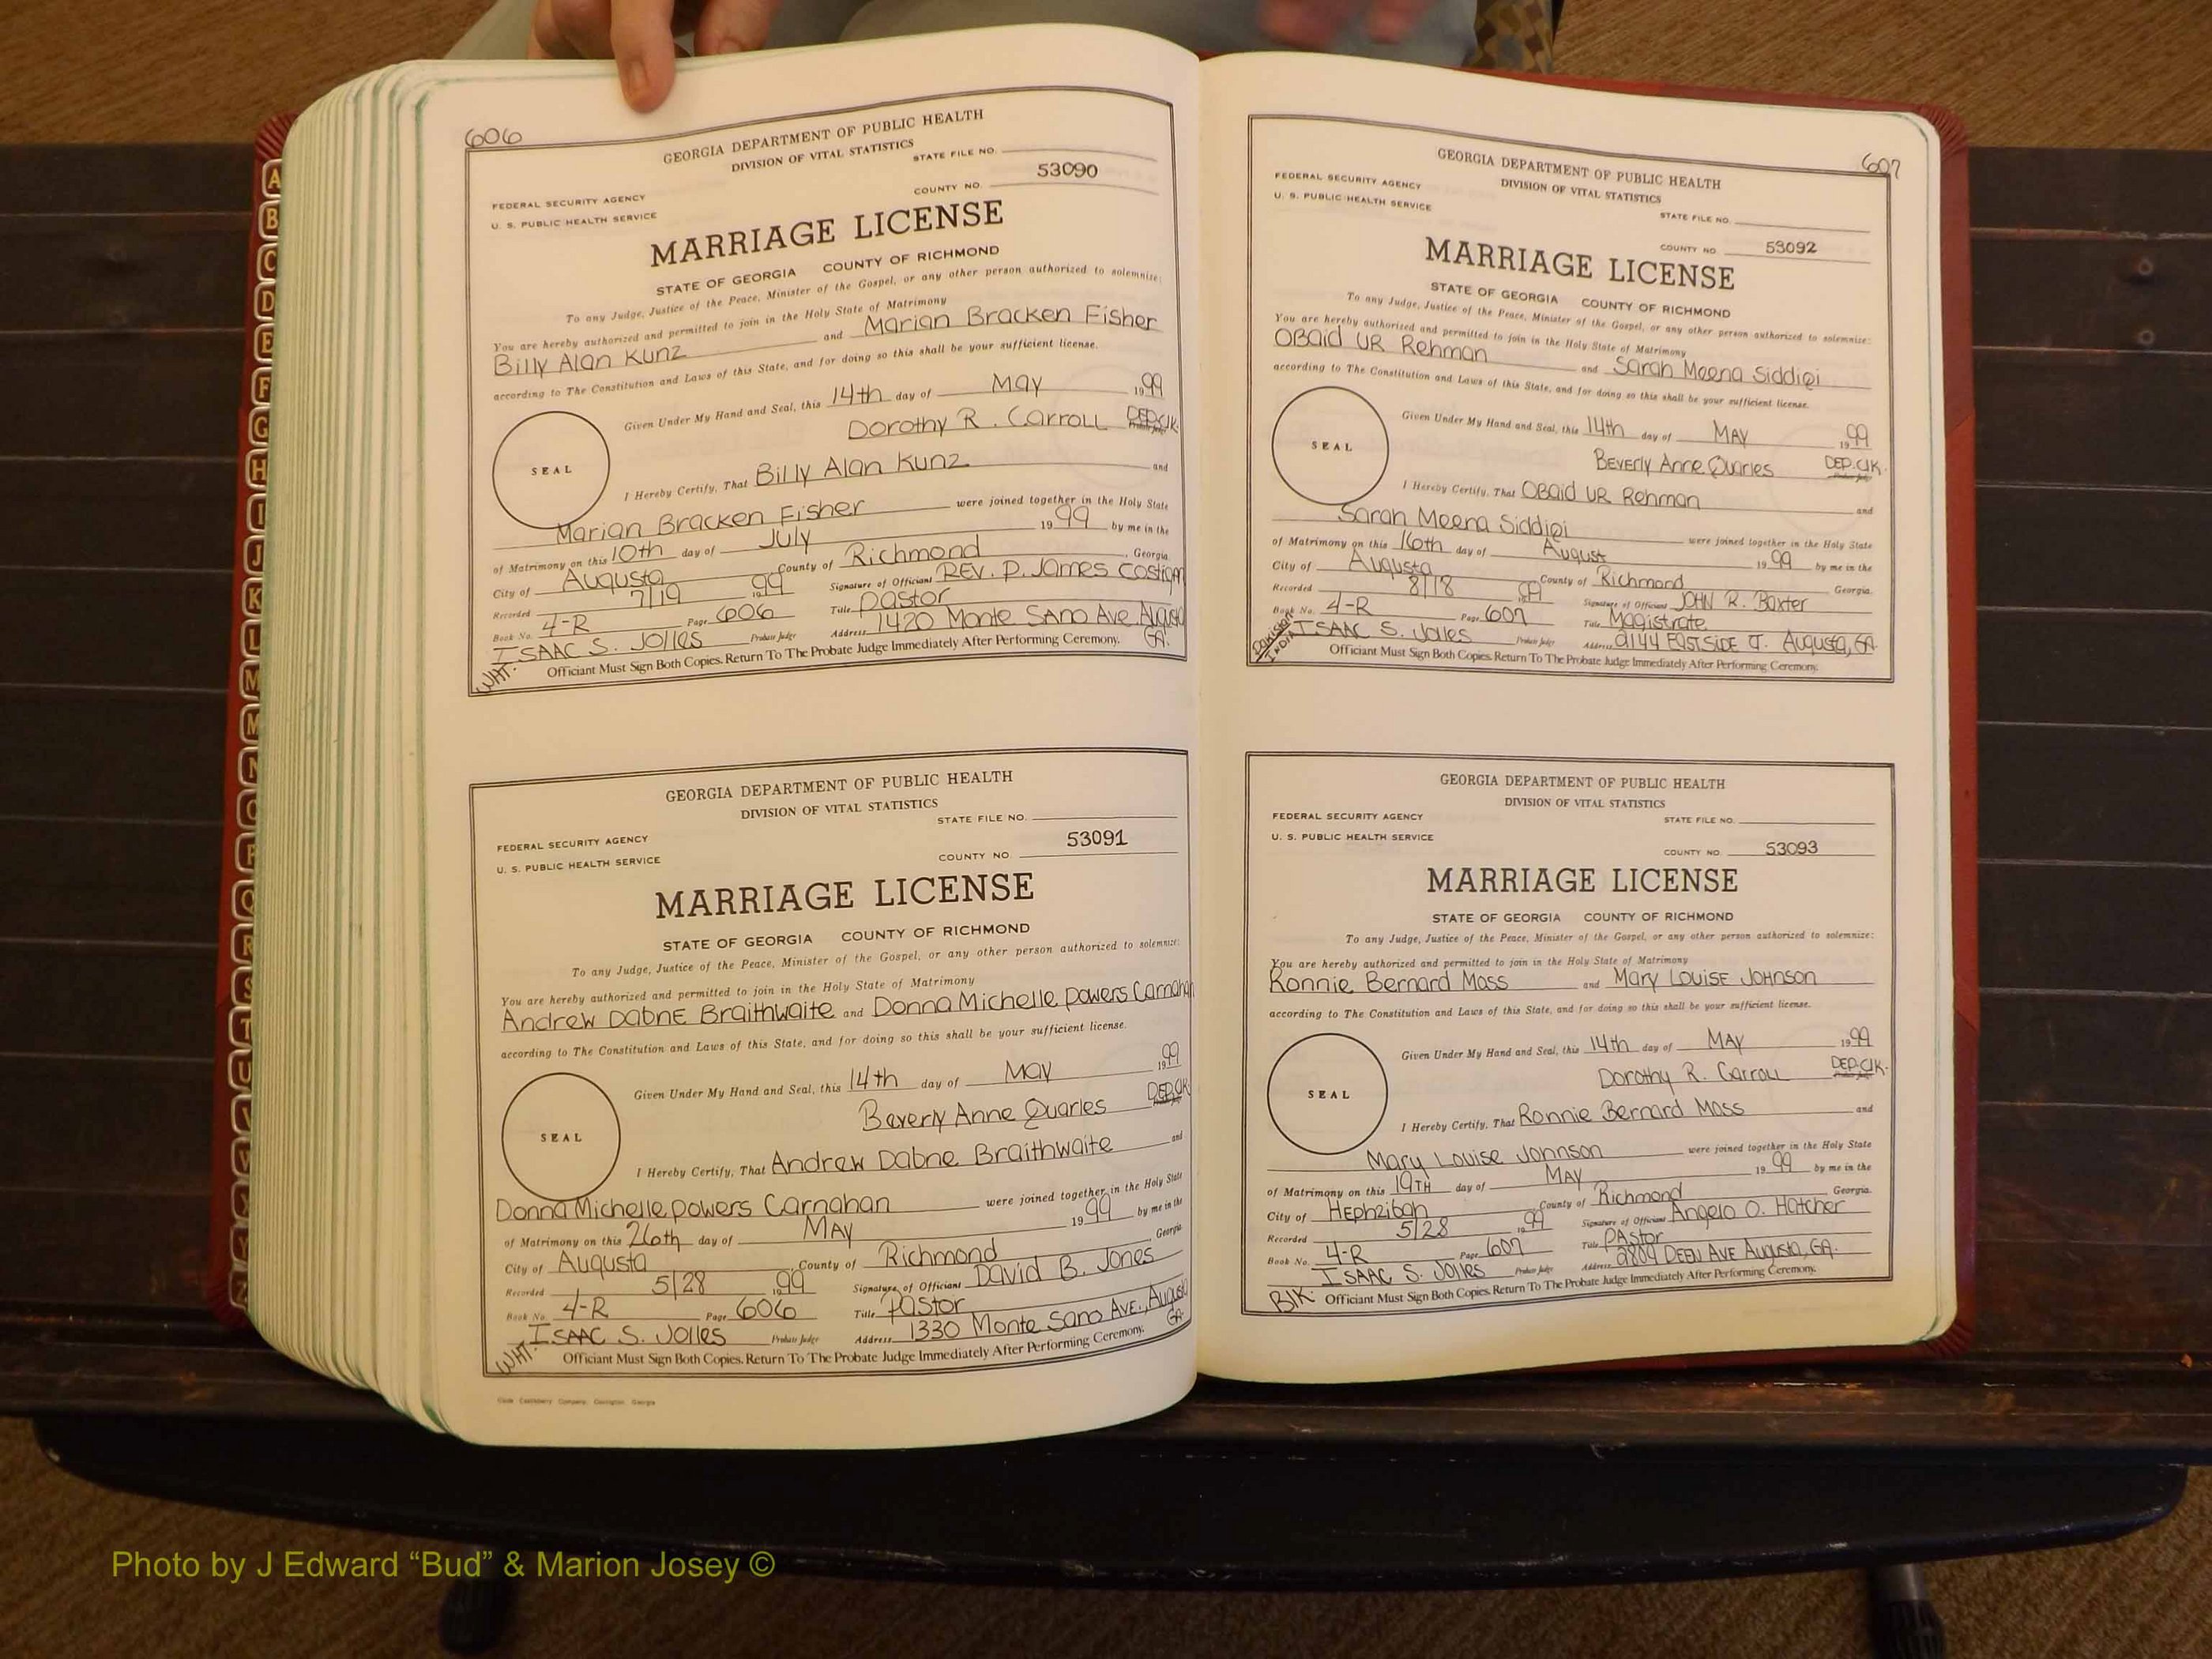 606
GEORGIA DEPARTMENT OF PUBLIC HEALTH
DIVISION OF VITAL STATISTICS
STATE FILE NO.
FEDERAL SECURITY AGENCY
U. S. PUBLIC HEALTH SERVICE
COUNTY NO. 53090
MARRIAGE LICENSE
STATE OF GEORGIA COUNTY OF RICHMOND
To any Judge, Justice of the Peace, Minister of the Gospel, or any other person authorized to solemnize:
You are hereby authorized and permitted to join in the Holy State of Matrimony
Billy Alan Kunz and Marian Bracken Fisher
according to The Constitution and Laws of this State, and for doing so this shall be your sufficient license.
Given Under My Hand and Seal, this 14th day of May 1999
Dorothy R. Carroll DEP.Clk.
SEAL
I Hereby Certify, That Billy Alan Kunz and
Marian Bracken Fisher were joined together in the Holy State
of Matrimony on this 10th day of July 1999 by me in the
City of Augusta County of Richmond, Georgia
Recorded 7/19 1999 Signature of Official REV. P. James Costigan
Book No. 4-R Page 606 Title Pastor
ISAAC S. Jolles Probate Judge Address 1420 Monte SAno Ave. Augusta GA.
WHT. Officiant Must Sign Both Copies. Return To The Probate Judge Immediately After Performing Ceremony.
GEORGIA DEPARTMENT OF PUBLIC HEALTH
DIVISION OF VITAL STATISTICS
STATE FILE NO.
FEDERAL SECURITY AGENCY
U. S. PUBLIC HEALTH SERVICE
COUNTY NO. 53091
MARRIAGE LICENSE
STATE OF GEORGIA COUNTY OF RICHMOND
To any Judge, Justice of the Peace, Minister of the Gospel, or any other person authorized to solemnize:
You are hereby authorized and permitted to join in the Holy State of Matrimony
Andrew DabnE Braithwaite and Donna Michelle Powers Carnahan
according to The Constitution and Laws of this State, and for doing so this shall be your sufficient license.
Given Under My Hand and Seal, this 14th day of May 1999
Beverly Anne Quarles DEP.Clk.
SEAL
I Hereby Certify, That Andrew Dabne Braithwaite and
Donna Michelle Powers Carnahan were joined together in the Holy State
of Matrimony on this 26th day of MAY 1999 by me in the
City of Augusta County of Richmond Georgia
Recorded 5/28 1999 Signature of Official David B. Jones
Book No. 4-R Page 606 Title PAStor
ISAAC S. Jolles Probate Judge Address 1330 Monte Sano AVE., Augusta GA.
WHT. Officiant Must Sign Both Copies. Return To The Probate Judge Immediately After Performing Ceremony.
607
GEORGIA DEPARTMENT OF PUBLIC HEALTH
DIVISION OF VITAL STATISTICS
FEDERAL SECURITY AGENCY
U. S. PUBLIC HEALTH SERVICE
STATE FILE NO.
COUNTY NO. 53092
MARRIAGE LICENSE
STATE OF GEORGIA COUNTY OF RICHMOND
To any Judge, Justice of the Peace, Minister of the Gospel, or any other person authorized to solemnize:
You are hereby authorized and permitted to join in the Holy State of Matrimony
OBaid UR Rehman and Sarah Meena Siddiqi
according to The Constitution and Laws of this State, and for doing so this shall be your sufficient license.
Given Under My Hand and Seal, this 14th day of MAY 1999
BEVErly Anne Quarles DEP.Clk.
SEAL
I Hereby Certify, That OBaid UR Rehman and
Sarah Meena Siddiqi were joined together in the Holy State
of Matrimony on this 16th day of August 1999 by me in the
City of Augusta County of Richmond Georgia
Recorded 8/18 1999 Signature of Official JOHN R. Baxter
Book No. 4-R Page 607 Title Magistrate
ISAAC S. Jolles Probate Judge Address 2144 EASTSIDE CT. Augusta, GA.
Pakistan INDIA Officiant Must Sign Both Copies. Return To The Probate Judge Immediately After Performing Ceremony.
GEORGIA DEPARTMENT OF PUBLIC HEALTH
DIVISION OF VITAL STATISTICS
FEDERAL SECURITY AGENCY
STATE FILE NO.
U. S. PUBLIC HEALTH SERVICE
COUNTY NO. 53093
MARRIAGE LICENSE
STATE OF GEORGIA COUNTY OF RICHMOND
To any Judge, Justice of the Peace, Minister of the Gospel, or any other person authorized to solemnize:
You are hereby authorized and permitted to join in the Holy State of Matrimony
Ronnie Bernard Moss and Mary LouisE JOHNSON
according to The Constitution and Laws of this State, and for doing so this shall be your sufficient license.
Given Under My Hand and Seal, this 14th day of MAY 1999
Dorothy R. Carroll DEP.Clk.
SEAL
I Hereby Certify, That Ronnie Bernard Moss and
Mary Louise Johnson were joined together in the Holy State
of Matrimony on this 19TH day of MAY 1999 by me in the
City of Hephzibah County of Richmond Georgia.
Recorded 5/28 1999 Signature of Official Angelo O. Hatcher
Book No. 4-R Page 607 Title PAStor
ISAAC S. Jolles Probate Judge Address 2809 DEEN AVE Augusta, GA.
BlK. Officiant Must Sign Both Copies. Return To The Probate Judge Immediately After Performing Ceremony.
A
B
C
D
E
F
G
H
I
J
K
L
M
Photo by J Edward “Bud” & Marion Josey ©